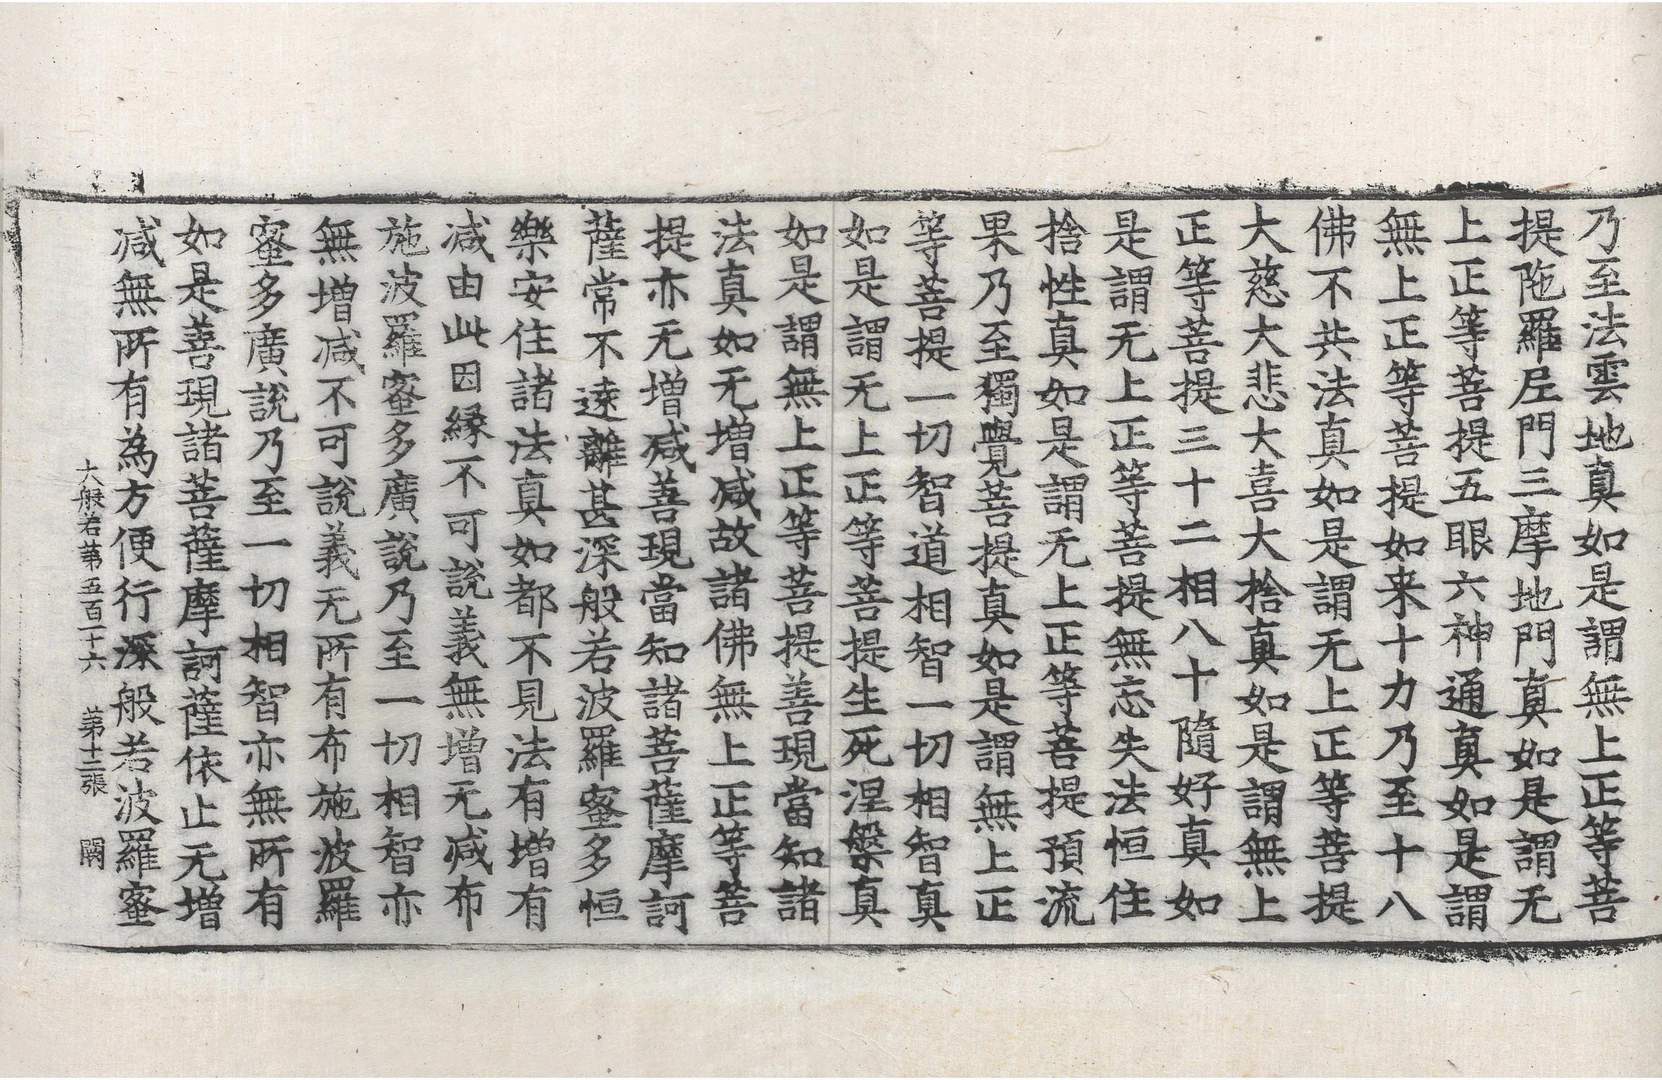 乃至法雲地真如是謂無上正等菩
提陁羅尼門三摩地門真如是謂无
上正等菩提五眼六神通真如是謂
無上正等菩提如来十力乃至十八
佛不共法真如是謂无上正等菩提
大慈大悲大喜大捨真如是謂無上
正等菩提三十二相八十隨好真如
是謂无上正等菩提無忘失法恒住
捨性真如是謂无上正等菩提預流
果乃至獨覺菩提真如是謂無上正
等菩提一切智道相智一切相智真
如是謂无上正等菩提生死涅槃真
如是謂無上正等菩提善現當知諸
法真如无增減故諸佛無上正等菩
提亦无增減善現當知諸菩薩摩訶
薩常不遠離甚深般若波羅蜜多恒
樂安住諸法真如都不見法有增有
減由此因緣不可說義無增无減布
施波羅蜜多廣說乃至一切相智亦
無增減不可說義无所有布施波羅
蜜多廣說乃至一切相智亦無所有
如是善現諸菩薩摩訶薩依止无增
減無所有為方便行深般若波羅蜜
大般若第五百二十六　第十二張　闕